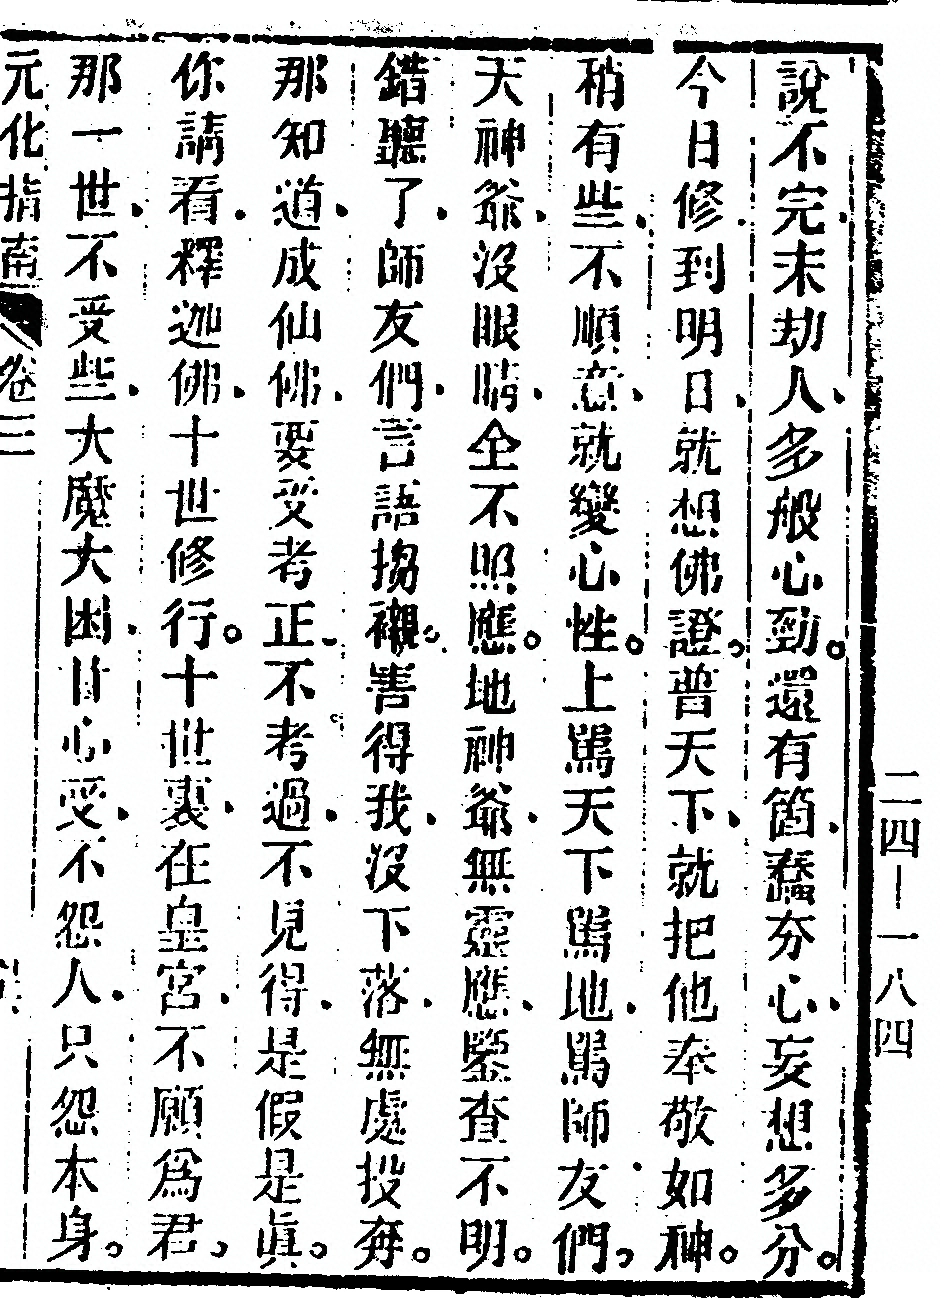 說不完、末劫人、多般心勁。還有箇、蠢夯心、妄想多分。
今日修、到明日、就想佛證。普天下、就把他奉敬如神。
稍有些、不順意、就變心性。上罵天下罵地、罵師友們。
天神爺、沒眼睛、全不照應。地神爺、無靈應、鑒查不明。
錯聽了、師友們、言語搊襯。害得我、沒下落、無處投奔。
那知道、成仙佛、要受考正。不考過、不見得、是假是眞。
你請看、釋迦佛、十世修行。十世裏、在皇宮、不願爲君。
那一世、不受些、大魔大困、甘心受、不怨人、只怨本身。
元化指南
卷三
二四—一八四